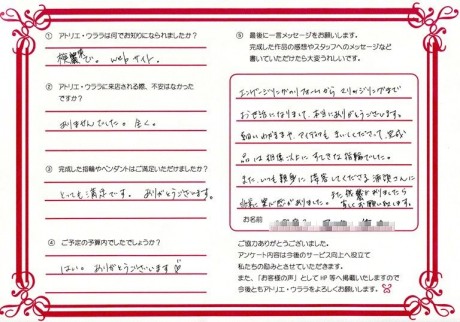 ① アトリエ・ウララは何でお知りになられましたか？
検索で。webサイト。
② アトリエ・ウララに来店される際、不安はなかった
ですか？
ありませんでした。全く。
③ 完成した指輪やペンダントはご満足いただけましたか？
とっても満足です。ありがとうございます。
④ ご予定の予算内でしたでしょうか？
はい。ありがとうございます
⑤ 最後に一言メッセージをお願いします。
完成した作品の感想やスタッフへのメッセージなど
書いていただけたら大変うれしいです。
エンゲージリングのリフォームから マリッジリングまで
お世話になりまして、本当にありがとうございます。
細いわがままや、アイデアも だしてくださって、完成
品は想像以上に すてきな指輪でした。
また、いつも親身に 接客してくださる
非常に 安心感がありました。また機会がありましたら
宜しくお願い致します。
お名前
ご協力ありがとうございました。
アンケート内容は今後のサービス向上へ役立て
私たちの励みとさせていただきます。
また、「お客様の声」として HP 等へ掲載いたしますので
今後ともアトリエ・ウララをよろしくお願いします。